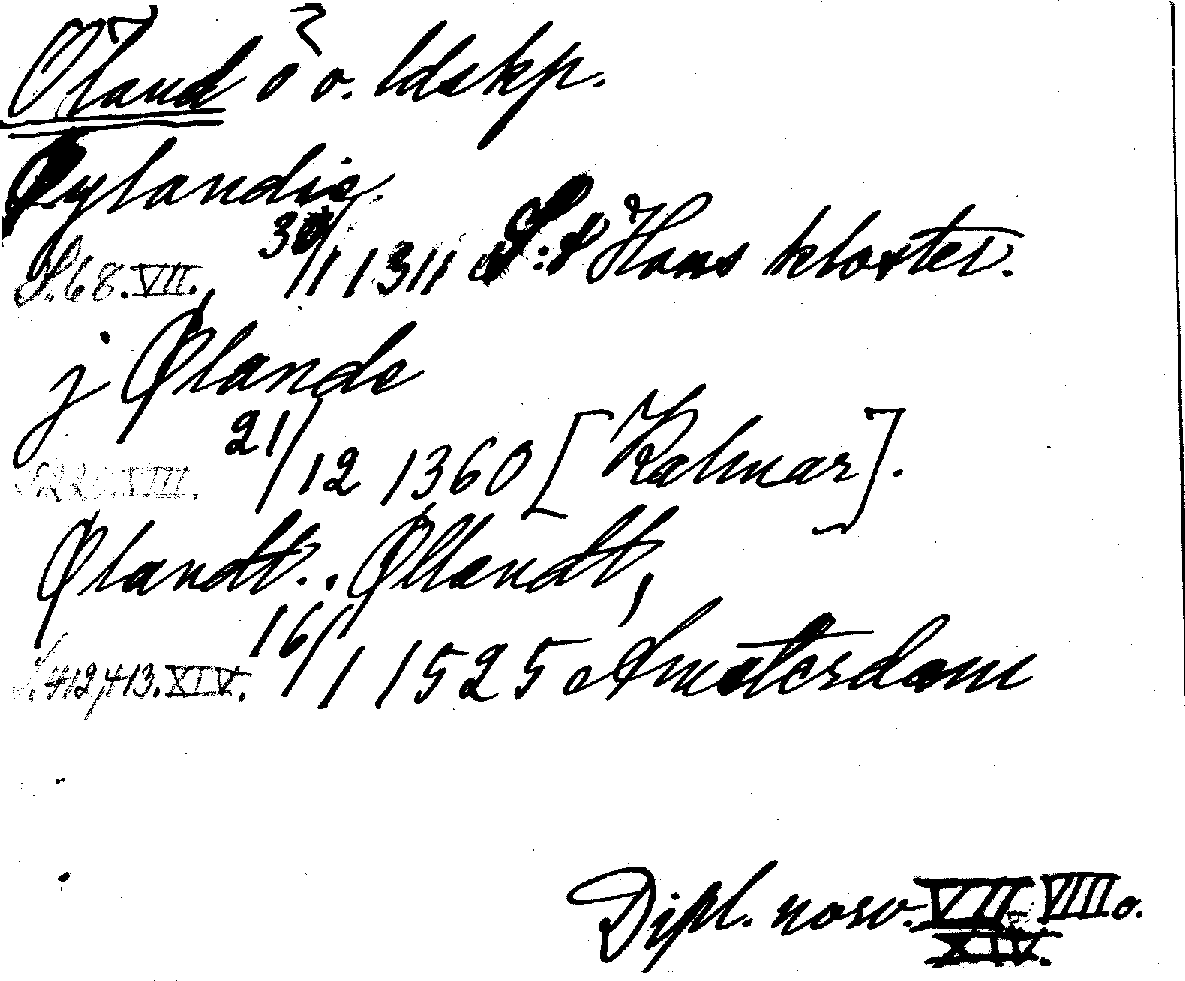 Öland ö o. ldskp.
Øylandie.
S. 68. VII. 30/11 1311 S:t Hans kloster.
j Ølande
VIII. 21/12 1360 [Kalmar].
Ølandt., Øllandt,
S. 412, 413. XIV. 16/1 1525 Amsterdam
Dipl. norv. VII, VIII o.
XIV.